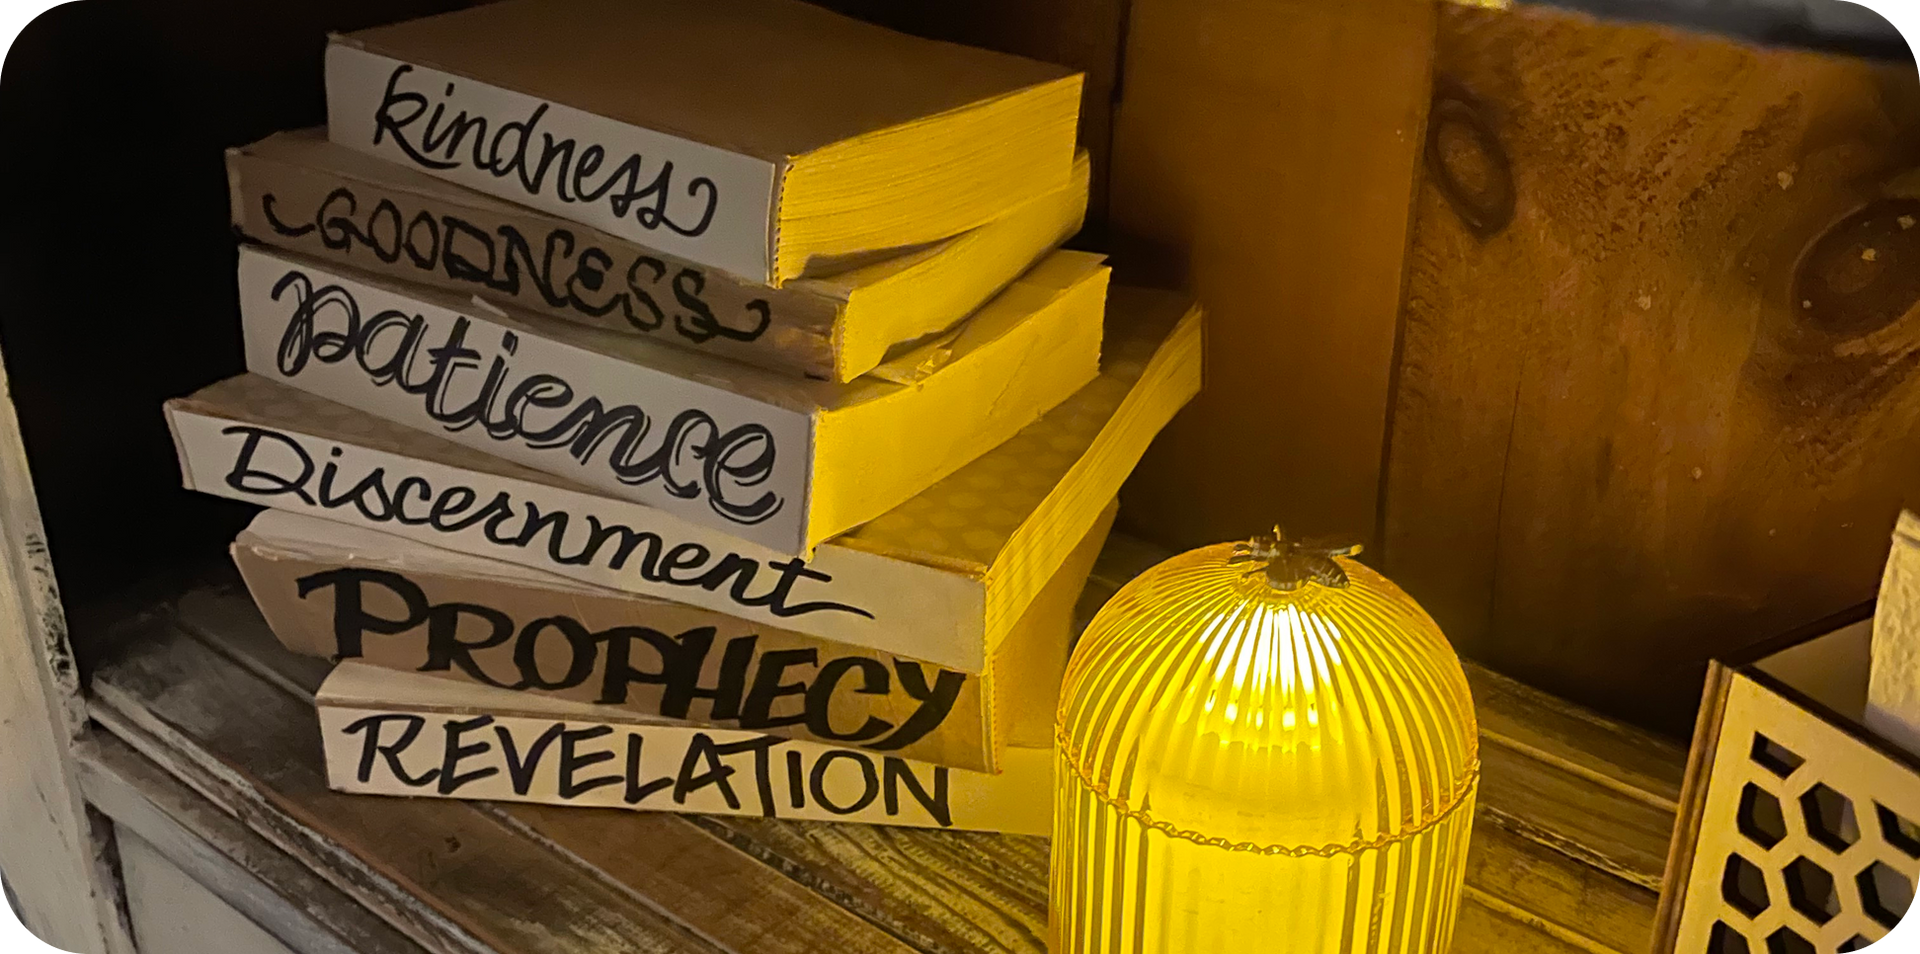 kindness
GOODNESS
patience
Discernment
PROPHECY
REVELATION